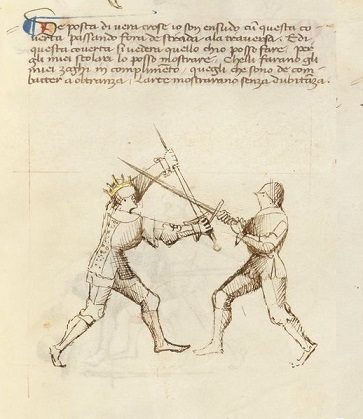 De posta di vera crose io son ensudo cũ questa co
verta passando fora de strada ala traversa. E di
questa coverta si vedera quello chio posso fare. Per
gli miei scolari lo posso mostrare. Chelli farano gli
miei zoghi in complimento, quegli che sono de com-
batter a oltranza. Larte mostrarano senza dubitãza.